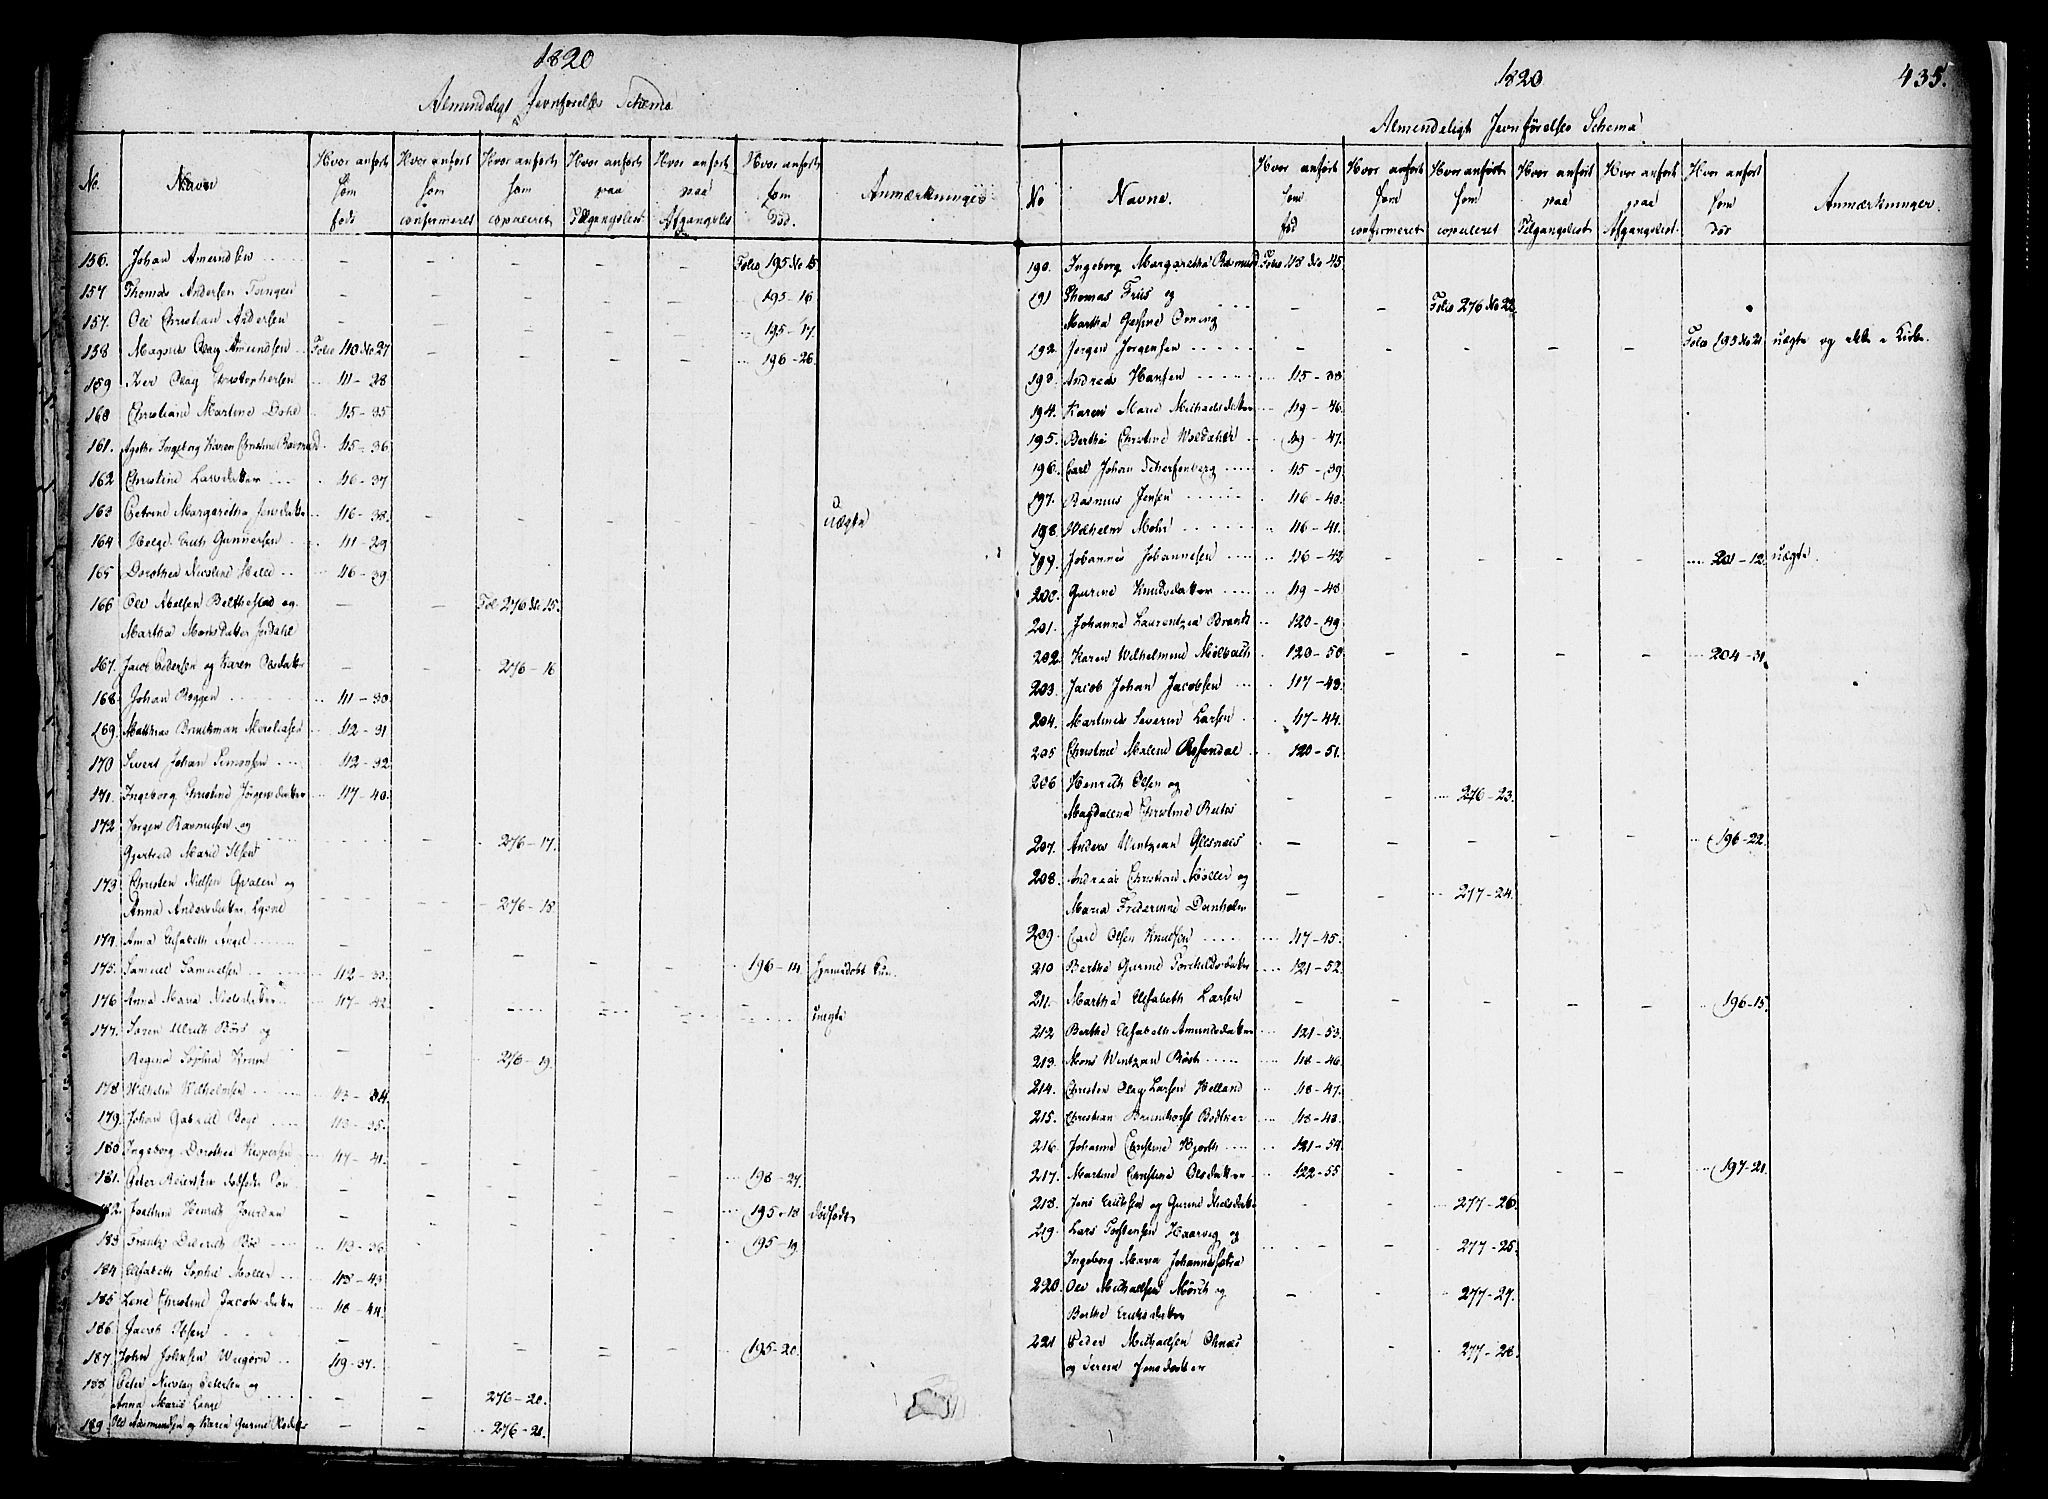 1820
Almindeligt Jevnførelses Schema
No. Navne Hvor anført som født. Hvor anført som confirmeret Hvor anført som copuleret Hvor anført paa Tilgangslist Hvor anført paa Afgangslist Hvor anført som Død. Anmærkninger
156. Johan Amundsen - - - - - Folio 195 No 15
157 Thomas Andersen - - - - - 195-16
157. Ole Christian Andersen - - - - - 195-17.
158 Magnus Olay Amundsen Folio 110 No 27 - - - - 196-26.
159 Iver Olay Christophersen 111-28
160 Christiane Martine Dahl 115-35
161. Agethe Ingeborg Karen Christine Rasmusd. 115-36
162 Christine Larsdatter 116-37
163 Petrine Margaretha Jensdatter 116-38. - - - - - uægte
164 Helge Erich Gunnersen 111-29
165 Dorothea Nicoline Helle 116-39
166 Ole Abelsen Belthestad og - - Fol 276 No 15.
Martha Monsdatter Jordahl
167. Jacob Pedersen og Karen Olsdatter - - 276-16
168. Johan Roggen 111-30
169. Matthias Bruickman Miceliasen 112-31
170 Sivert Johan Simonsen 112-32
171. Ingeborg Christine Jørgensdatter 117-40
172 Jørgen Rasmussen og - - 276-17.
Gjertrud Marie Ibsen
173 Christen Nielsen Qvalen og - - 276-18.
Anna Andersdatter Lysne
174. Anna Elisabeth Angel - - - - - 196-14
175. Samuel Samuelsen 112-33
176 Anna Maria Nielsdatter 117-42 - - - - - uægte
177. Søren Ulrich Børs og - - 276-19.
Regina Sophia Krum
178 Wilhelm Wilhelmsen 113-34.
179. Johan Gabriel Boge 113-35.
180 Ingeborg Dorothea Kaspersen 117-41. - - - - 198-27.
181. Peder Reiersen dødfødt Søn - - - - - 195-18 dødfødt
182. Joachim Henrich Jourdan - - - - - 195-19.
183 Frantz Diderich Bøe 113-36
184 Elisabeth Sophie Møller 118-43
185 Lene Christine Jacobsdatter 118-44.
186 Jacob Ibsen - - - - - 195-20.
187. John Johnsen Wiigørn 119-37.
188 Peder Nicolay Petersen og - - 276-20.
Anna Marie Lange
189. Ole Aamundsen og Karen Gurine Olsdatter - - 276-21.
1820 435.
Almindeligt Jevnførelses Schema
No Navne. Hvor anført som fød Hvor anført som confirmeret Hvor anført som copuleret Hvor anført paa Tilgangslist Hvor anført paa Afgangslist. Hvor anført som død Anmærkninger.
190. Ingeborg Margaretha Rasmusd. Folio 118 No 45.
191 Thomas Friis og - - Folio 276 No 22.
Martha Gesine Orning
192. Jørgen Jørgensen - - - - - Folio 195 No 21 uægte og
193. Andreas Hansen 115-38
194. Karen Marie Michaelsdatter 119-46.
195. Berthe Christine Woldahl 119-47.
196. Carl Johan Scherfenberg 115-39
197. Rasmus Jensen 116-40.
198 Wilhelm Mohr 116-41.
199. Johannes Johannesen 116-42 201-12. uægte.
200. Gurine Knudsdatter 119-48
201. Johanne Laurentzia Brandt 120-49
202. Karen Wilhelmine Møllbach 120-50 - - - - 204-31.
203. Jacob Johan Jacobsen 117-43.
204. Martines Severin Larsen 117-44.
205 Christine Malene Rosendal 120-51.
206 Henrich Olsen og - - 276-23.
Magdalena Christine Reutz
207. Anders Wintzian Glesnæs - - - - - 196-22.
208. Andreas Christian Møller og - - 277-24.
Maria Frederinne Danholm
209. Carl Olsen Knudsen 117-45.
210 Berthe Gurine Torchildsdatter 121-52.
211. Martha Elisabeth Larsen - - - - - 196-15.
212 Berthe Elisabeth Amundsdatter 121-53.
213. Mons Wintzan Røseth 118-46.
214. Christen Olay Larsen Helland 118-47.
215. Christian Brunchorst Bødtker 118-48.
216. Johanne Christine Bjorth 121-54.
217. Martine Christine Olsdatter 122-55 - - - - 197-21.
218. Jens Erichsen og Gurine Nielsdatter - - 277-26.
219. Lars Torstensen Haarvig og - - 277-25.
Ingeborg Maria
220. Ole Michaelsen Mørch og - - 277-27.
Berthe Erichsdatter
221 Peder Michaelsen Olnæs - - 277-28.
og Serena Jonsdatter